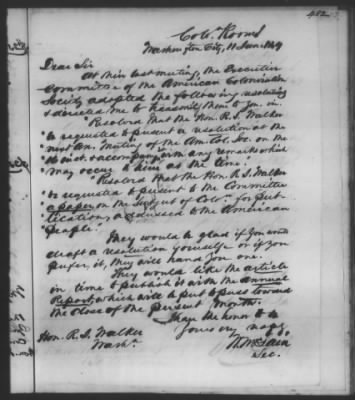 452
Colo. Rooms
Washington City, 11 Jan. 1849
Dear Sir
At their last meeting, the Executive
Committee of the American Colonization
Society adopted the following resolutions
& directed me to transmit them to you. viz.
"Resolved that the Hon. R. S. Walker
"be requested to present a resolution at the
"next An. Meeting of the Am. Col. Soc. on the
inst. & accompany with any remarks which
"may occur to him at the time."
"Resolved that the Hon. R. S. Walker
"be requested to present to the Committee
a paper on the subject of Colon. for pub-
"lication, addressed to the American
people."
They would be glad if you would
draft a resolution yourself or if you
prefer it, they will hand you one.
They would like the article
in time to publish it with the Annual
Report, which will be put to press toward
the close of the present month.
I have the honor to be
Yours very resp.
&c.
W. McLain
Sec.
Hon. R. S. Walker
Washn.